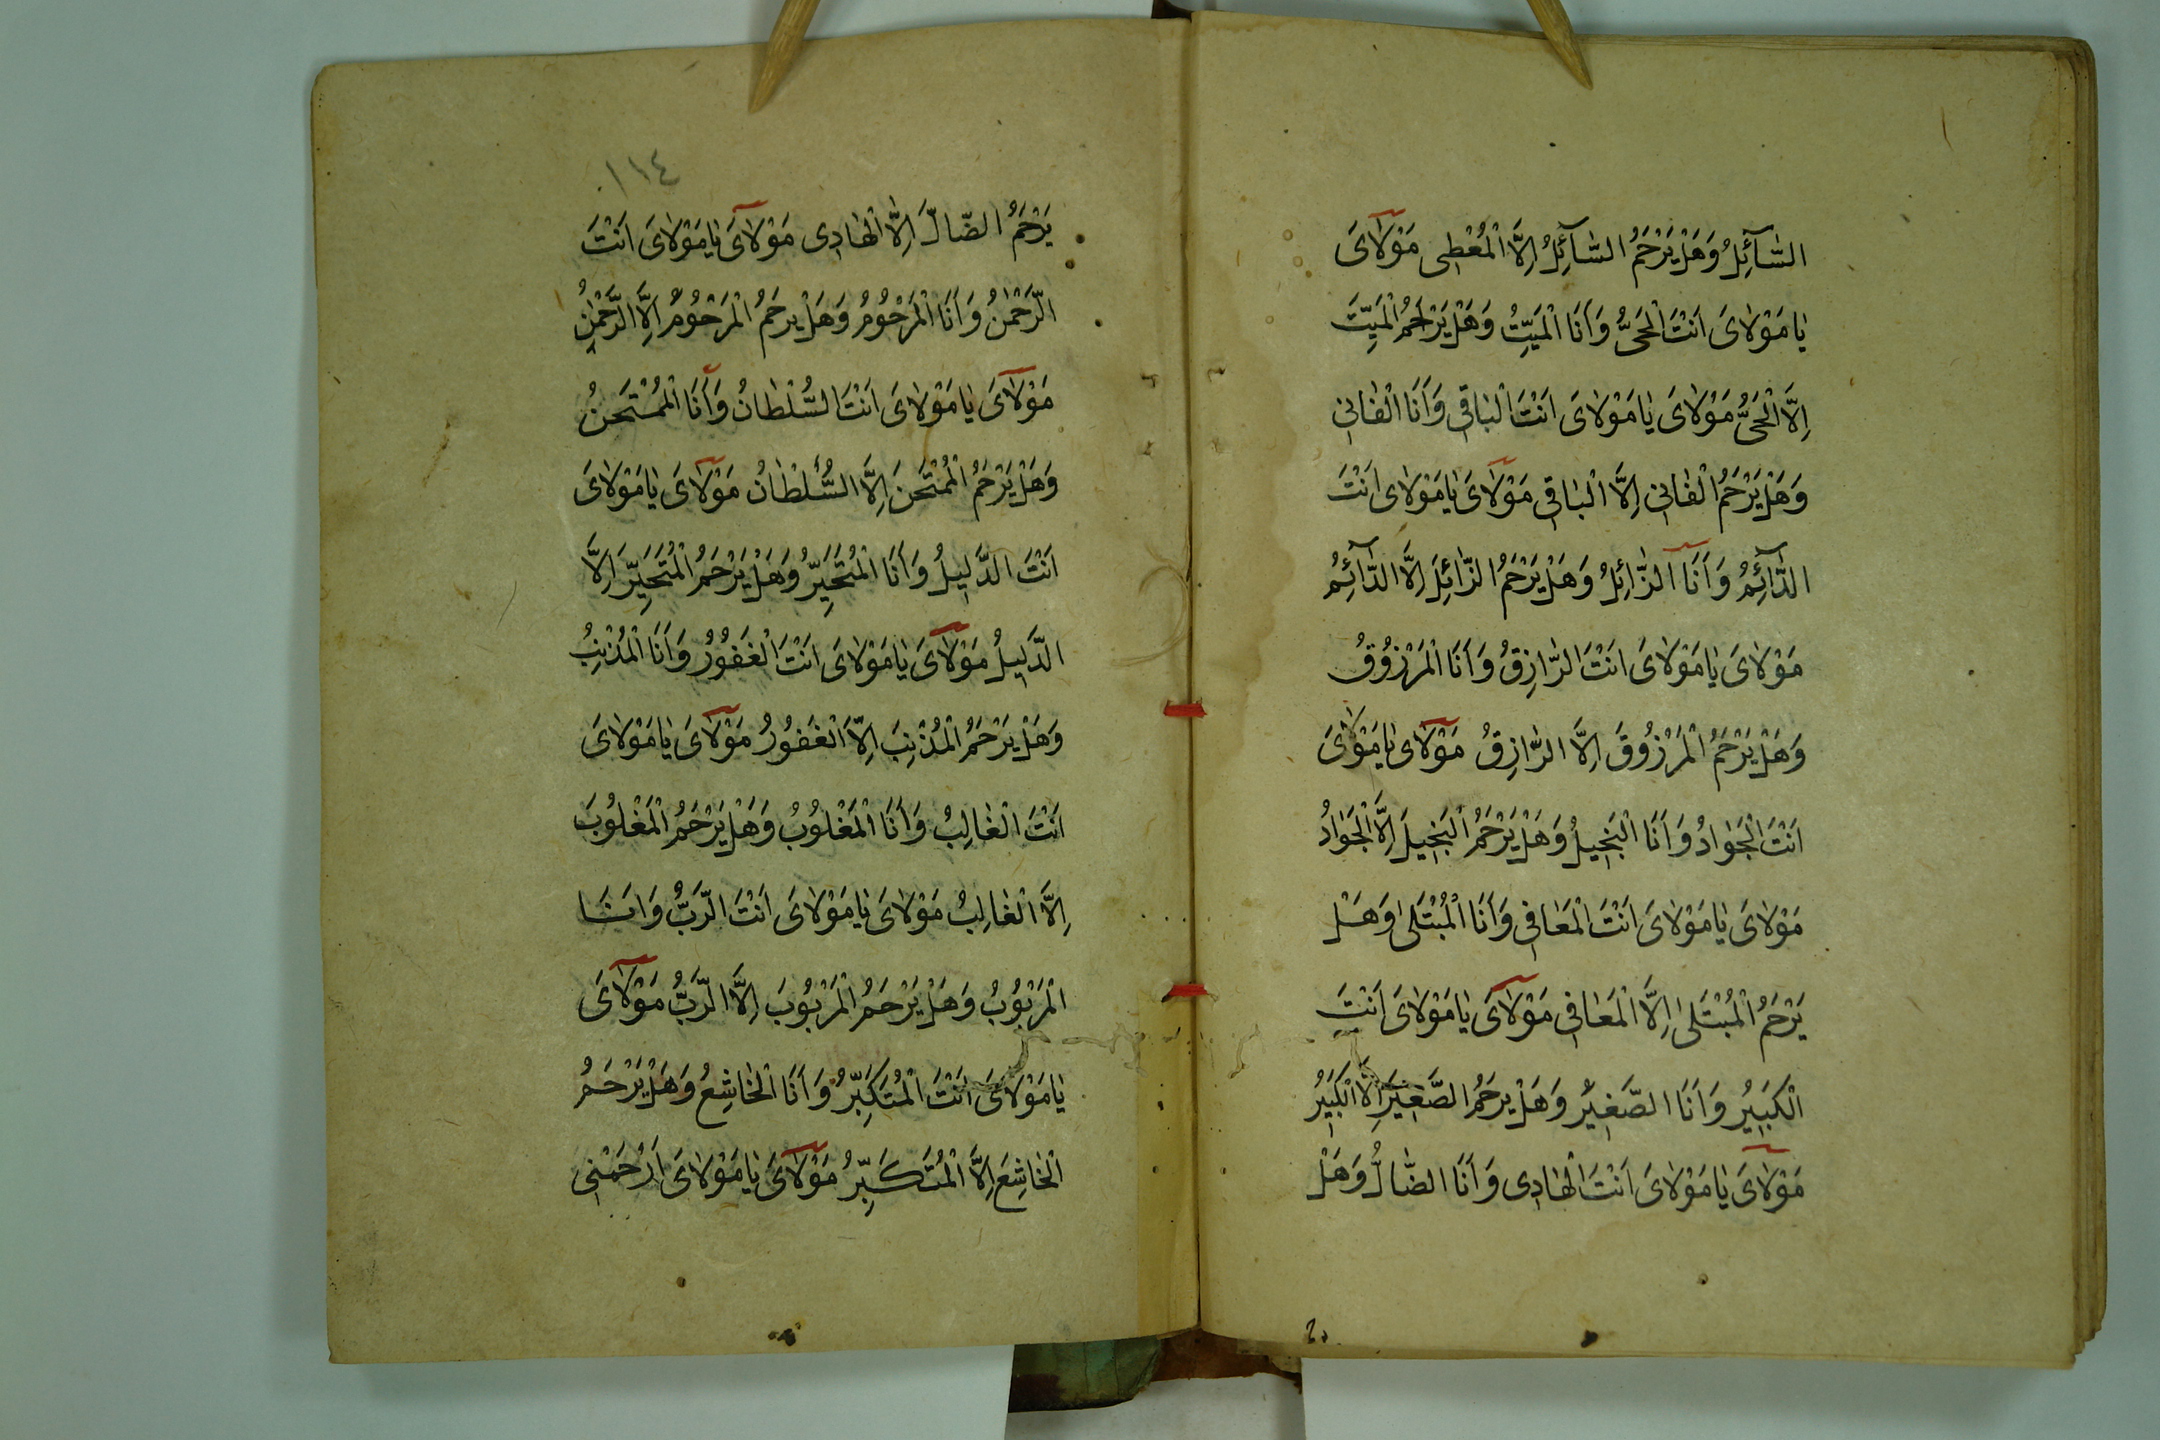 السَّآئِلُ وَهَلْ يَرْحَمُ السَّآئِلُ اِلَّا الْمُعْطِى مَوْلَاىَ
يٰا مَوْلٰاىَ اَنْتَ الْحَىُّ وَاَنَا الْمَيِّتُ وَهَلْ يَرْحَمُ الْمَيِّتَ
اِلَّا الْحَىُّ مَوْلَاىَ يٰا مَوْلٰاىَ اَنْتَ الْبٰاقِى وَاَنَا الْفٰانِى
وَهَلْ يَرْحَمُ الْفٰانِى اِلَّا الْبٰاقِى مَوْلَاىَ يٰا مَوْلٰاىَ اَنْتَ
الدَّآئِمُ وَاَنَا الزَّائِلُ وَهَلْ يَرْحَمُ الزَّائِلَ اِلَّا الدَّآئِمُ
مَوْلٰاىَ يٰا مَوْلٰاىَ اَنْتَ الرّٰازِقُ وَاَنَا الْمَرْزُوقُ
وَهَلْ يَرْحَمُ الْمَرْزُوقَ اِلَّا الرّٰازِقُ مَوْلَاىَ يٰا مَوْلَاىَ
اَنْتَ الْجَوٰادُ وَاَنَا الْبَخِيلُ وَهَلْ يَرْحَمُ الْبَخِيلَ اِلَّا الْجَوٰادُ
مَوْلٰاىَ يٰا مَوْلٰاىَ اَنْتَ الْمَعٰافِى وَاَنَا الْمُبْتَلىٰ وَهَلْ
يَرْحَمُ الْمُبْتَلىٰ اِلَّا الْمَعٰافِى مَوْلَاىَ يٰا مَوْلٰاىَ اَنْتَ
الْكَبِيرُ وَاَنَا الصَّغِيرُ وَهَلْ يرحَمُ الصَّغِيرَ اِلَّا الْكَبِيرُ
مَوْلٰاىَ يٰا مَوْلٰاىَ اَنْتَ الْهٰادِى وَاَنَا الضّٰالُّ وَهَلْ
١١٤
يَرْحَمُ الضّالَّ اِلَّا الْهٰادِى مَوْلَاىَ يٰا مَوْلٰاىَ اَنْتَ
الرَّحْمٰنُ وَاَنَا الْمَرْحُومُ وَهَلْ يرحَمُ الْمَرْحُومُ اِلَّا الرَّحْمٰنُ
مَوْلَاىَ يٰا مَوْلٰاىَ اَنْتَ السُّلْطٰانُ وَاَنَا الْمُمْتَحَنُ
وَهَلْ يَرْحَمُ الْمُمْتَحَنَ اِلَّا السُّلْطٰانُ مَوْلَاىَ يٰا مَوْلٰاىَ
اَنْتَ الدَّلِيلُ وَاَنَا الْمُتَحَيِّرُ وَهَلْ يَرْحَمُ الْمُتَحَيِّرَ اِلَّا
الدَّلِيلُ مَوْلَاىَ يٰا مَوْلٰاىَ اَنْتَ الْغَفُورُ وَاَنَا الْمُذْنِبُ
وَهَلْ يَرْحَمُ الْمُذْنِبَ اِلَّا الْغَفُورُ مَوْلَاىَ يٰا مَوْلٰاىَ
اَنْتَ الْغٰالِبُ وَاَنَا الْمَغْلُوبُ وَهَلْ يَرْحَمُ الْمَغْلُوبَ
اِلَّا الْغٰالِبُ مَوْلٰاىَ يٰا مَوْلٰاىَ اَنْتَ الرَّبُّ وَاَنَا
الْمَرْبُوبُ وَهَلْ يَرْحَمُ الْمَرْبُوبَ اِلَّا الرَّبُّ مَوْلَاىَ
يٰا مَوْلَاىَ اَنْتَ الْمُتَكَبِّرُ وَاَنَا الْخٰاشِعُ وَهَلْ يَرْحَمُ
الْخٰاشِعَ اِلَّا الْمُتَكَبِّرُ مَوْلَاىَ يٰا مَوْلٰاىَ اَرْحَمْنِى